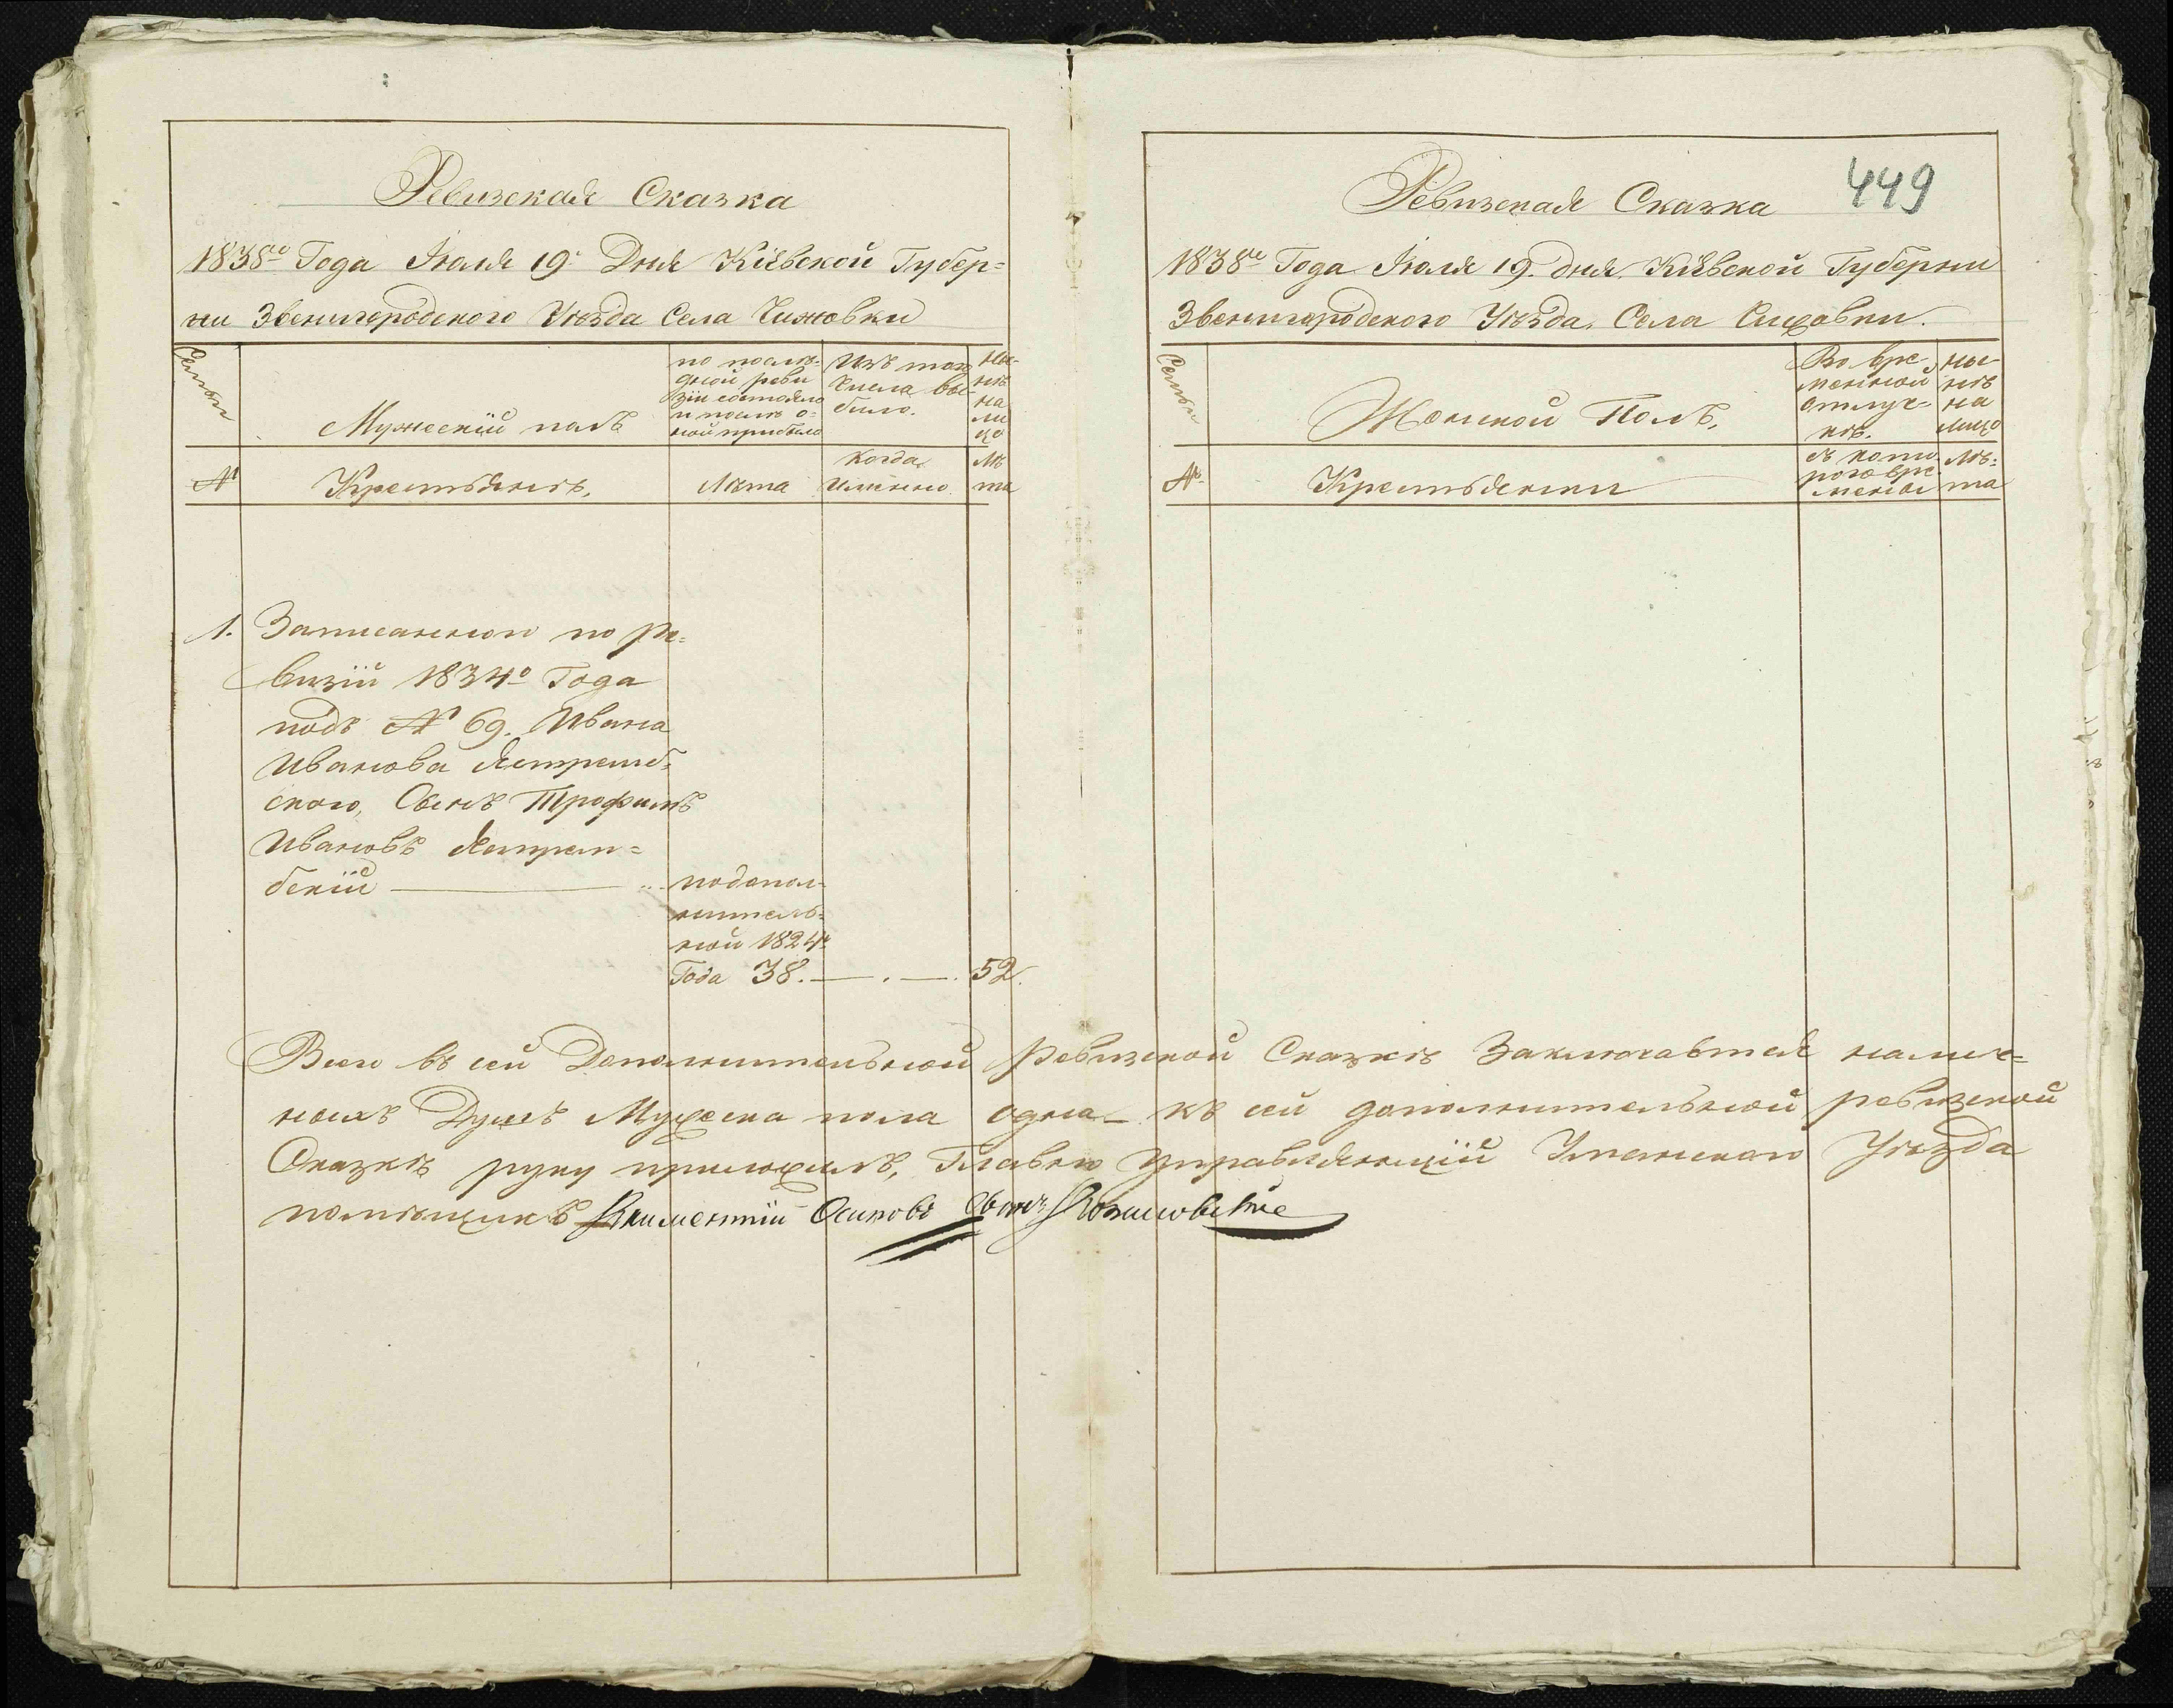 Ревизская Сказка
1838го Года Іюля 19. Дня Кіевской Губер=
нии Звенигородского Уѣзда Села Чижовки
Семьи
Мужескій полъ
по послѣ-
дней реви
зіи состояло
и послѣ о-
ной прибыло
Изъ того
числа вы-
было.
Ны-
нѣ
на
ли
цо
№
Крестьянѣ.
Лѣта
Когда
именно
Лѣ
та
1. Записанного по ре=
визіи 1834го Года
подъ № 69. Ивана
Иванова Ястремб=
ского, Сынъ Трофимъ
Ивановъ Ястрем=
бскій
подопол-
нитель=
ной 1824го
Года 38. — . — 52.
449
Ревизская Сказка
1838го Года Іюля 19. дня Кіевской Губернии
Звенигородского Уѣзда. Села Чижовки.
Семьи
Женской Полъ.
Во вре-
менной
отлуч-
кѣ.
ны-
нѣ
на
лицо
№
Крестьянки
съ кото-
рого вре
мени
Лѣ=
та
Всего въ сей Дополнительной Ревизской Сказкѣ Заключается налич=
ныхъ Душъ Мужеска пола одна – къ сей дополнительной ревизской
Сказкѣ руку приложилъ, Главно Управляющій Уманского Уѣзда
помѣщикъ Климентій Осиповъ Сынъ